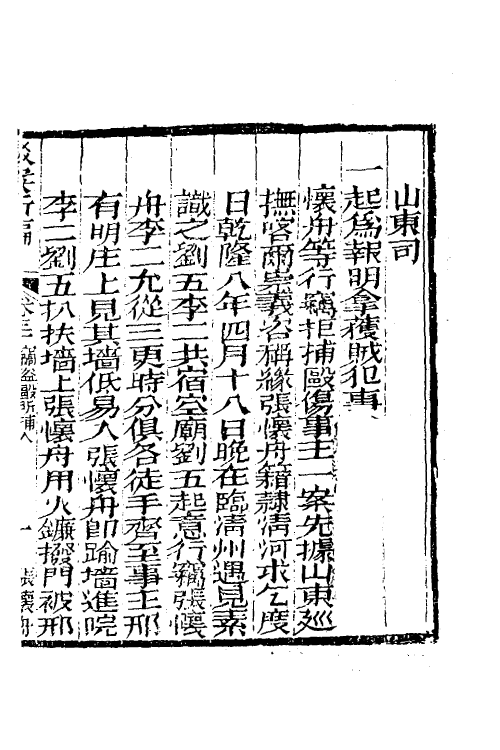 山東司
一起爲報明拿獲賊犯事
懷舟等行竊拒捕毆傷事主一案先據山東廵
撫喀爾崇義咨稱緣張懷舟籍隸清河求乞度
日乾隆八年四月十八日晚在臨清州遇見素
識之劉五李二共宿空廟劉五起意行竊張懷
舟李二允從三更時分俱各徒手齊至事主邢
有明庄上見其墻低易入張懷舟卽踰墻進院
李二劉五扒扶墻上張懷舟用火鐮撥門被邢
卷三 竊盜毆所捕人 一 張懷舟